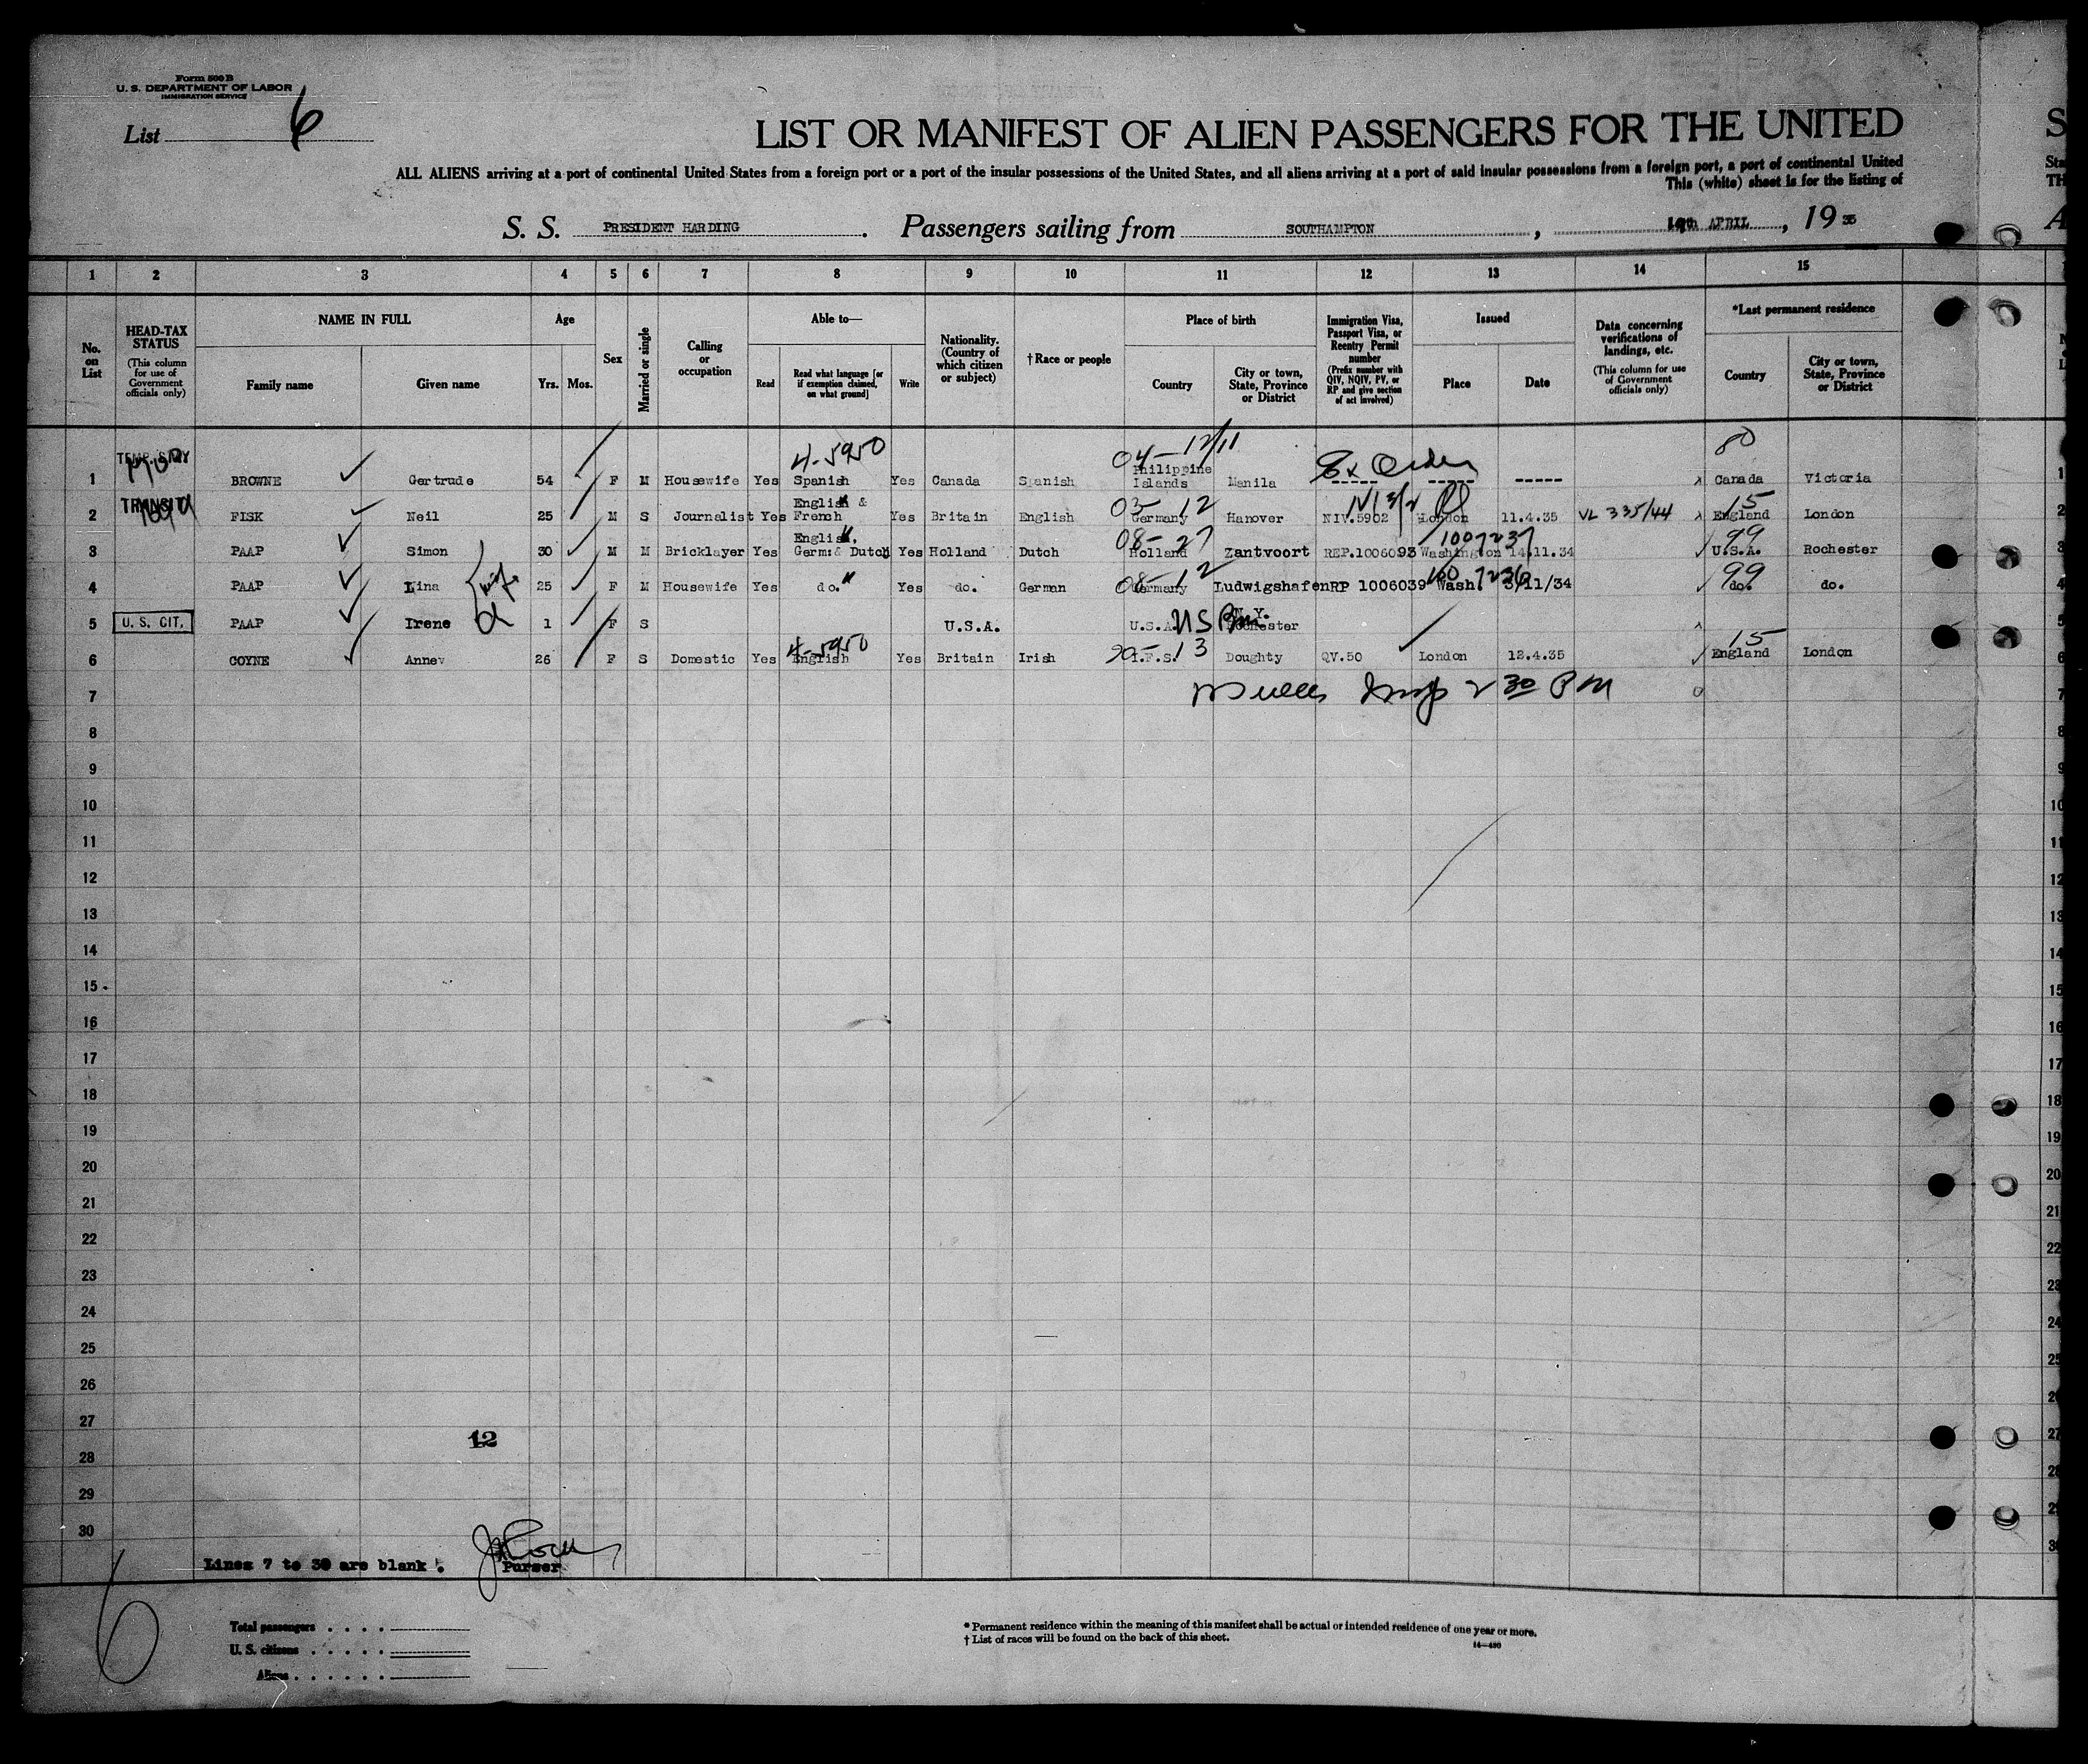 Form 500 B
U. S. DEPARTMENT OF LABOR
IMMIGRATION SERVICE
List 6
LIST OR MANIFEST OF ALIEN PASSENGERS FOR THE UNITED
ALL ALIENS arriving at a port of continental United States from a foreign port or a port of the insular possessions of the United States, and all aliens arriving at a port of said insular possessions from a foreign port, a port of continental United
This (white) sheet is for the listing of
S. S. PRESIDENT HARDING. Passengers sailing from SOUTHAMPTON, APRIL, 1935
1 2 3 4 5 6 7 8 9 10 11 12 13 14 15
No. on List
HEAD-TAX STATUS
(This column for use of Government officials only)
NAME IN FULL
Family name
Given name
Age
Yrs. Mos.
Sex
Married or single
Calling or occupation
Able to—
Read
Read what language [or if exemption claimed, on what ground]
Write
Nationality. (Country of which citizen or subject)
†Race or people
Place of birth
Country
City or town, State, Province or District
Immigration Visa, Passport Visa, or Reentry Permit number
(Prefix number with QIV, NQIV, PV, or RP and give section of act involved)
Issued
Place
Date
Data concerning verifications of landings, etc.
(This column for use of Government officials only)
*Last permanent residence
Country
City or town, State, Province or District
4-5950 04-12/11 Ex Order 80
1 TEMP. STAY BROWNE Gertrude 54 F M Housewife Yes Spanish Yes Canada Spanish Philippine Islands Manila ----- ----- ----- Canada Victoria
03-12 15
2 TRANSIT FISK Neil 25 M S Journalist Yes English & French Yes Britain English Germany Hanover NIV.5902 London 11.4.35 VL 335/44 England London
08-27 1007237 99
3 PAAP Simon 30 M M Bricklayer Yes English, Germ: & Dutch Yes Holland Dutch Holland Zantvoort REP.1006093 Washington 14.11.34 U.S.A. Rochester
08-12 99
4 PAAP Lina wife 25 F M Housewife Yes do. Yes do. German Germany Ludwigshafen RP 1006039 Wash. 3/11/34 do. do.
5 U. S. CIT. PAAP Irene d 1 F S U.S.A. U.S.A. US Bn. N.Y. Rochester
4-5950 13 15
6 COYNE Annev 26 F S Domestic Yes English Yes Britain Irish I.F.S. Doughty QV.50 London 12.4.35 England London
7 Insp 2 30 PM
8
9
10
11
12
13
14
15
16
17
18
19
20
21
22
23
24
25
26
27
12
28
29
30
Lines 7 to 30 are blank.
Purser
6
Total passengers
U. S. citizens
Aliens
* Permanent residence within the meaning of this manifest shall be actual or intended residence of one year or more.
† List of races will be found on the back of this sheet.
14—480